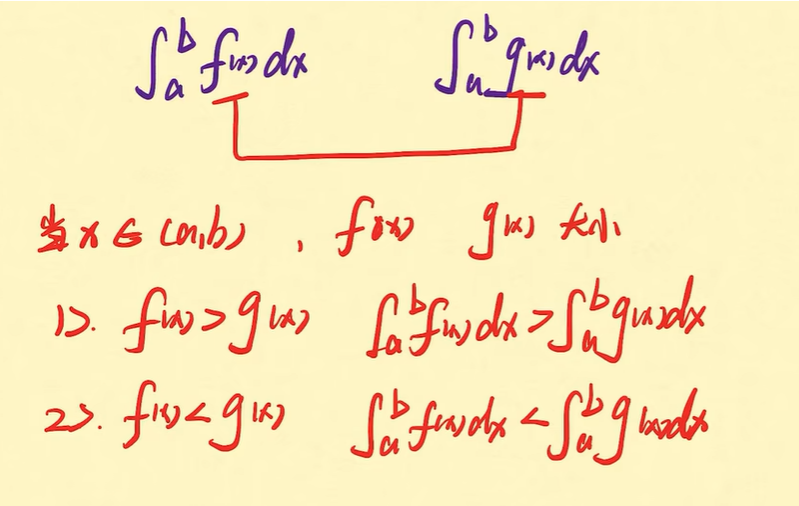 ∫ₐᵇ f(x)dx ∫ₐᵇ g(x)dx
当x∈(a,b), f(x) g(x) 大小
1>. f(x)>g(x) ∫ₐᵇ f(x)dx>∫ₐᵇ g(x)dx
2>. f(x)<g(x) ∫ₐᵇ f(x)dx<∫ₐᵇ g(x)dx